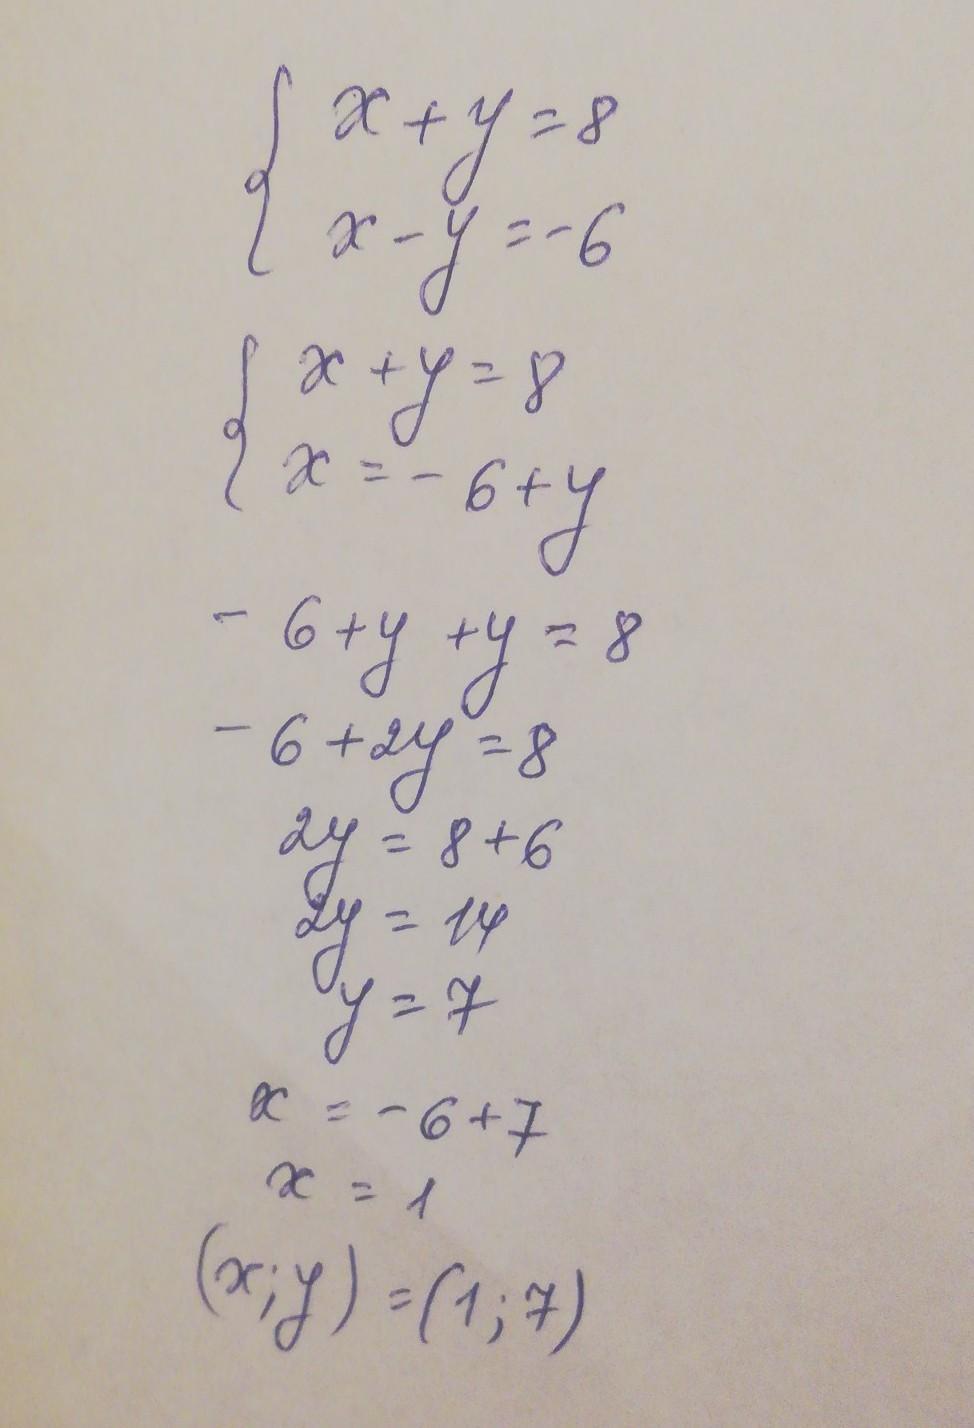 x + y = 8
x - y = -6
x + y = 8
x = - 6 + y
- 6 + y + y = 8
- 6 + 2y = 8
2y = 8 + 6
2y = 14
y = 7
x = - 6 + 7
x = 1
(x; y) = (1; 7)